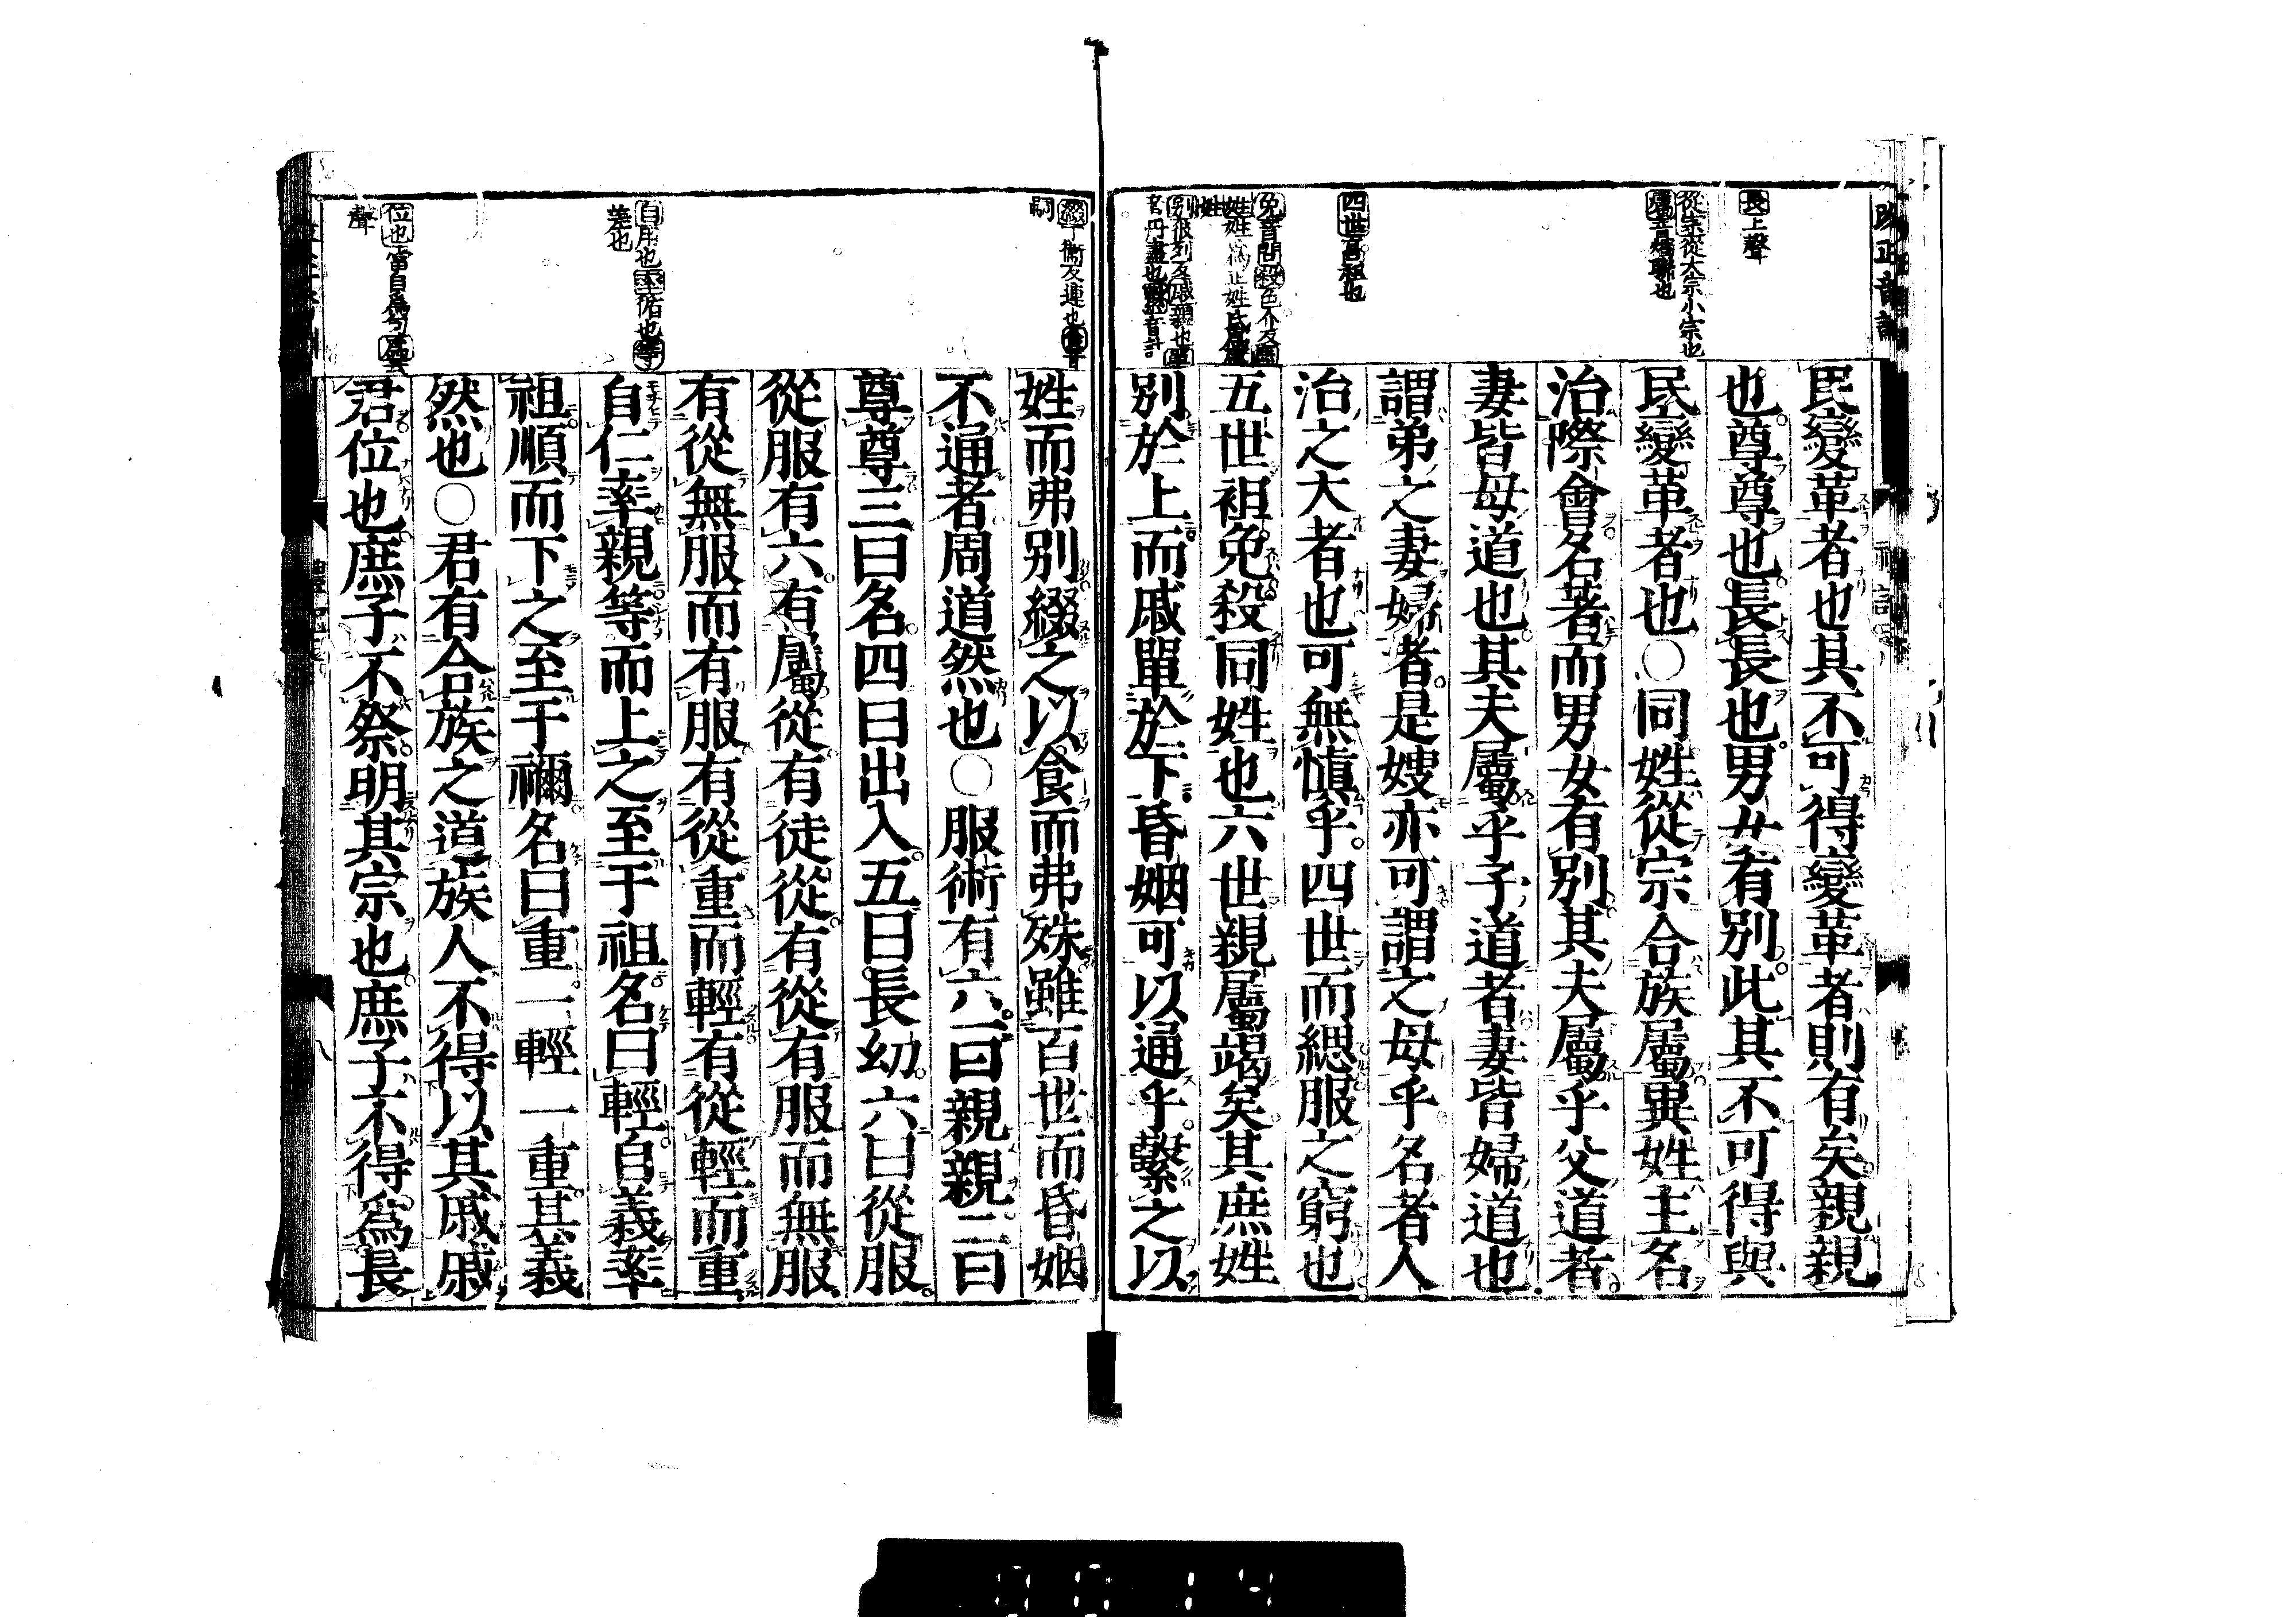 長上聲
從宗從大宗小宗也
屬音燭聯也
四世高祖也
民變革者也其不可得變革者則有矣親親
也尊尊也長長也男女有別此其不可得與
民變革者也○同姓從宗合族屬異姓主名
治際會名著而男女有別其夫屬乎父道者
妻皆母道也其夫屬乎子道者妻皆婦道也
謂弟之妻婦者是嫂亦可謂之母乎名者人
治之大者也可無慎乎四世而緦服之窮也
五世袒免殺同姓也六世親屬竭矣其庶姓
別於上而戚單於下昏姻可以通乎繫之以
自用也率循也等
差也
姓而弗別綴之以食而弗殊雖百世而昏姻
不通者周道然也○服術有六一曰親親二曰
尊尊三曰名四曰出入五曰長幼六曰從服
從服有六有屬從有徒從有從有服而無服
有從無服而有服有從重而輕有從輕而重
自仁率親等而上之至于祖名曰輕自義率
祖順而下之至于禰名曰重一輕一重其義
然也○君有合族之道族人不得以其戚戚
君位也庶子不祭明其宗也庶子不得爲長